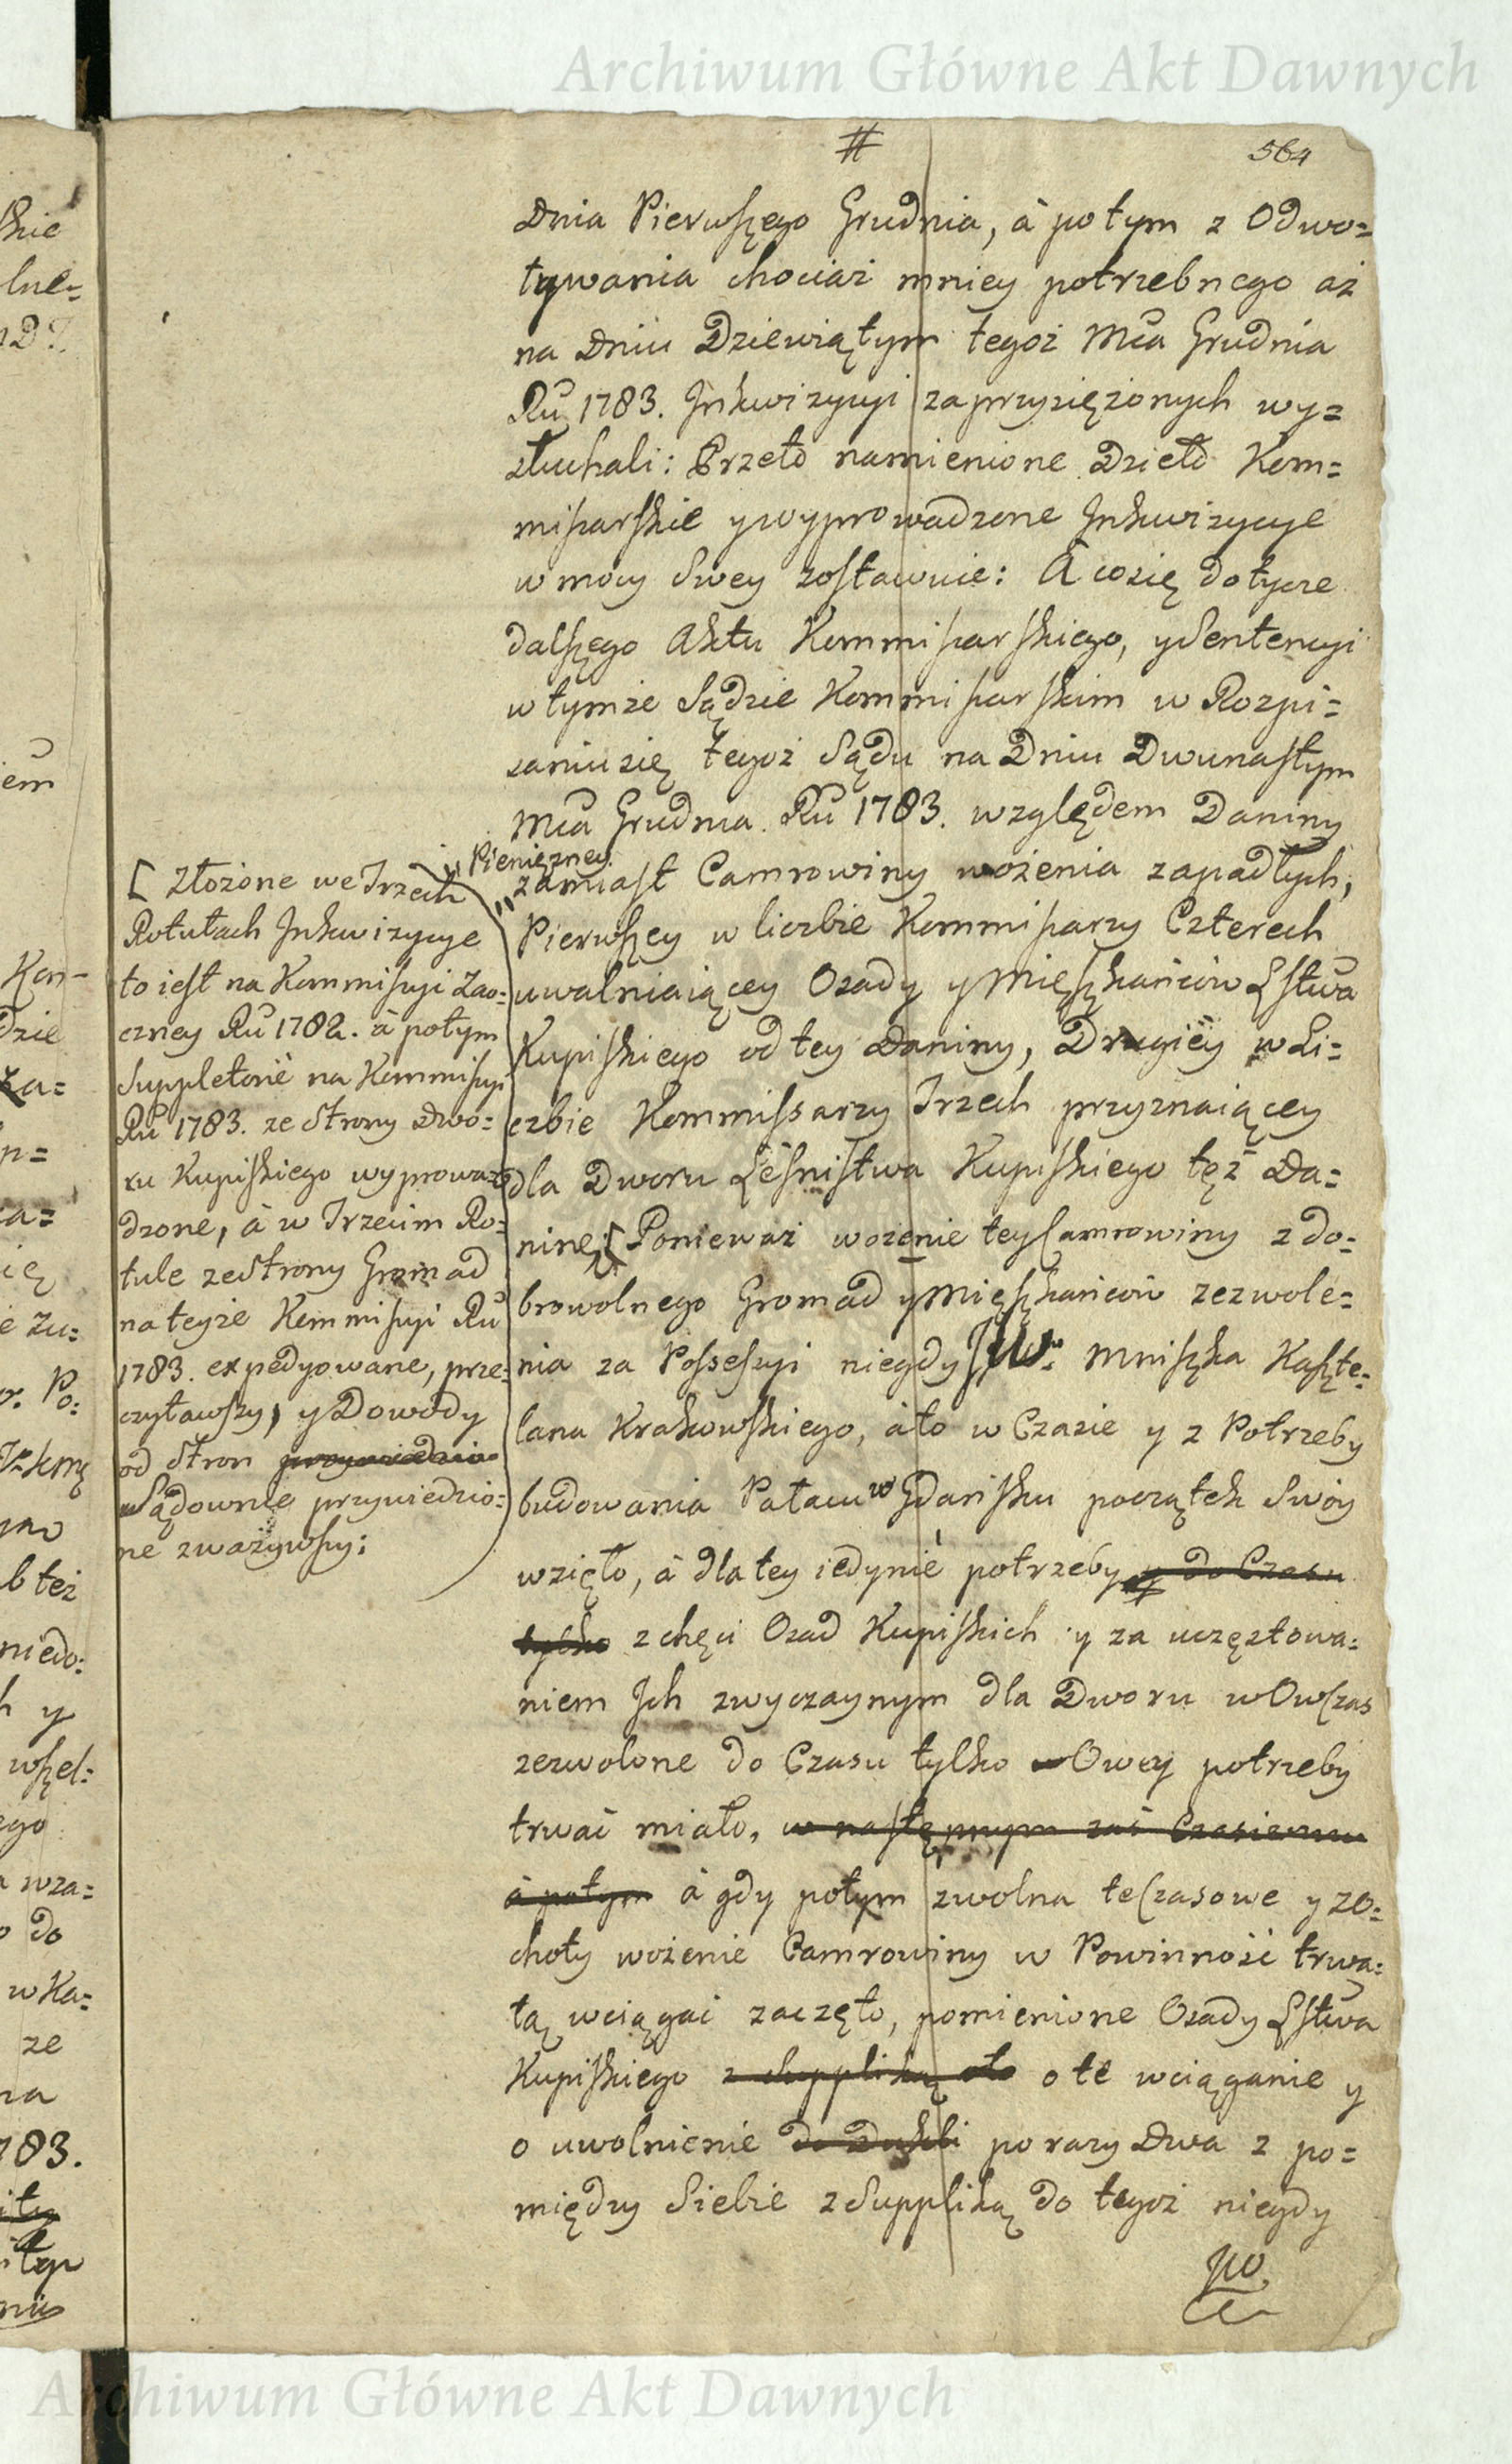 Archiwum Główne Akt Dawnych
#
564
Dnia Pierwszego Grudnia, à potym z Odwo=
ływania chociaż mniey potrzebnego aż
na Dniu Dziewiątym tegoż Mca Grudnia
Ru 1783. Jnkwizycyi zaprzysiężonych wy=
słuchali: Przeto namienione Dzieło Kom=
missarskie y wyprowadzone Jnkwizycye
w mocy Swey zostawuie: A co się dotycze
dalszego Aktu Kommissarskiego, y Sentencyi
w tymże Sądzie Kommissarskim w Rozpi=
saniu się tegoż Sądu na Dniu Dwunastym
Mca Grudnia Ru 1783. względem Daniny
Pienięzney
zamiast Camrowiny wożenia zapadłych,
Pierwszey w liczbie Kommissarzy Czterech
uwalniaiącey Osady y Mięszkańców Lstwa
Kupiskiego od tey Daniny, Drugiey w Li=
czbie Kommissarzy Trzech przyznaiącey
dla Dworu Leśnistwa Kupiskiego tęż Da=
ninę; [ Ponieważ wożenie tey Camrowiny z do=
browolnego Gromad y Mięszkańców zezwole=
nia za Possessyi niegdy JW: Mniszka Kaszte=
lana Krakowskiego, à to w Czasie y z Potrzeby
budowania Pałacu w Gdańsku początek Swóy
wzięło, à dla tey iedynie potrzeby y do Czasu
tylko z chęci Osad Kupiskich y za uczęstowa=
niem Jch zwyczaynym dla Dworu w Owczas
zezwolone do Czasu tylko Owey potrzeby
trwać miało, w następnym zaś Czasie
à potym à gdy potym zwolna te Czasowe y z o=
choty wożenie Camrowiny w Powinność trwa=
łą wciągać zaczęło, pomienione Osady Lstwa
Kupiskiego z Suppliką o to o te wciąganie y
o uwolnienie do Dukli po razy Dwa z po=
między Siebie z Suppliką do tegoż niegdy
JW
[ złożone we Trzech
Rotułach Jnkwizycye
to iest na Kommissyi Zao=
czney Ru 1782. à potym
Suppletorie na Kommissyi
Ru 1783. ze Strony Dwo=
ru Kupiskiego wyprowa=
dzone, à w Trzecim Ro=
tule ze Strony Gromad
na teyże Kommissyi Ru
1783. expedyowane, prze=
czytawszy, y Dowody
od Stron przywiedzio
Sądownie przywiedzio=
ne zważywszy;
Archiwum Główne Akt Dawnych